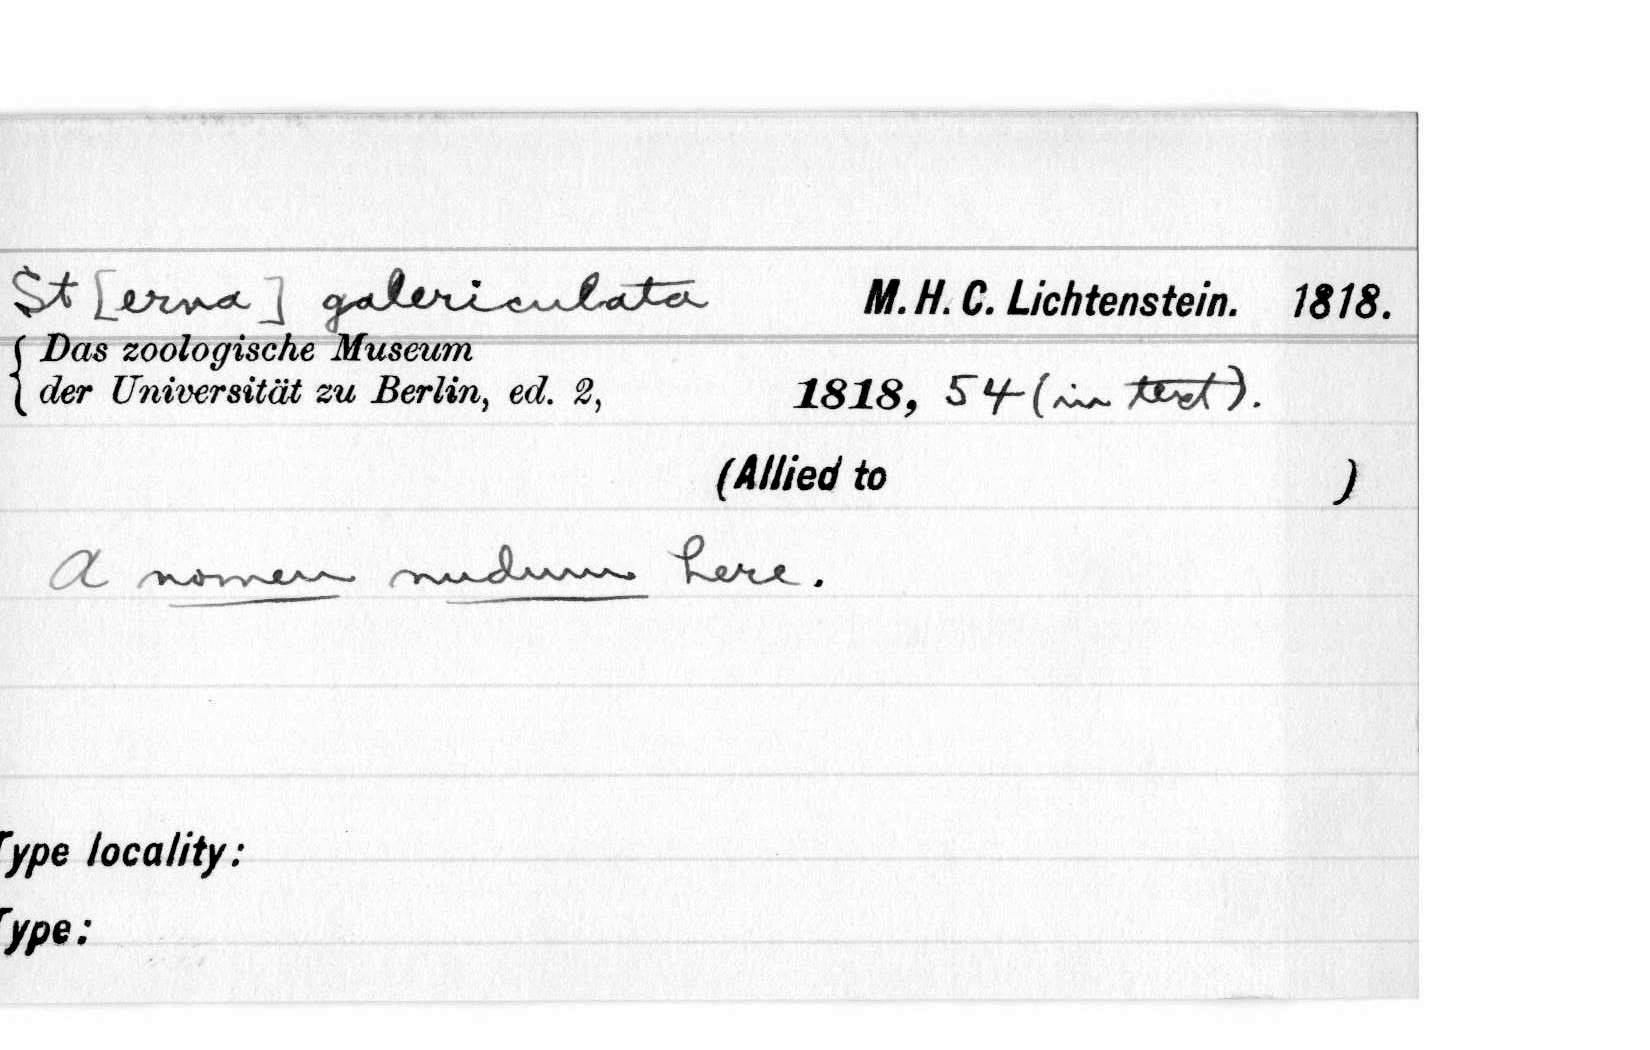 St[erna] galericulata M. H. C. Lichtenstein. 1818.
{ Das zoologische Museum
der Universität zu Berlin, ed. 2, 1818, 54 (in text).
(Allied to )
A nomen nudum here.
Type locality:
Type: